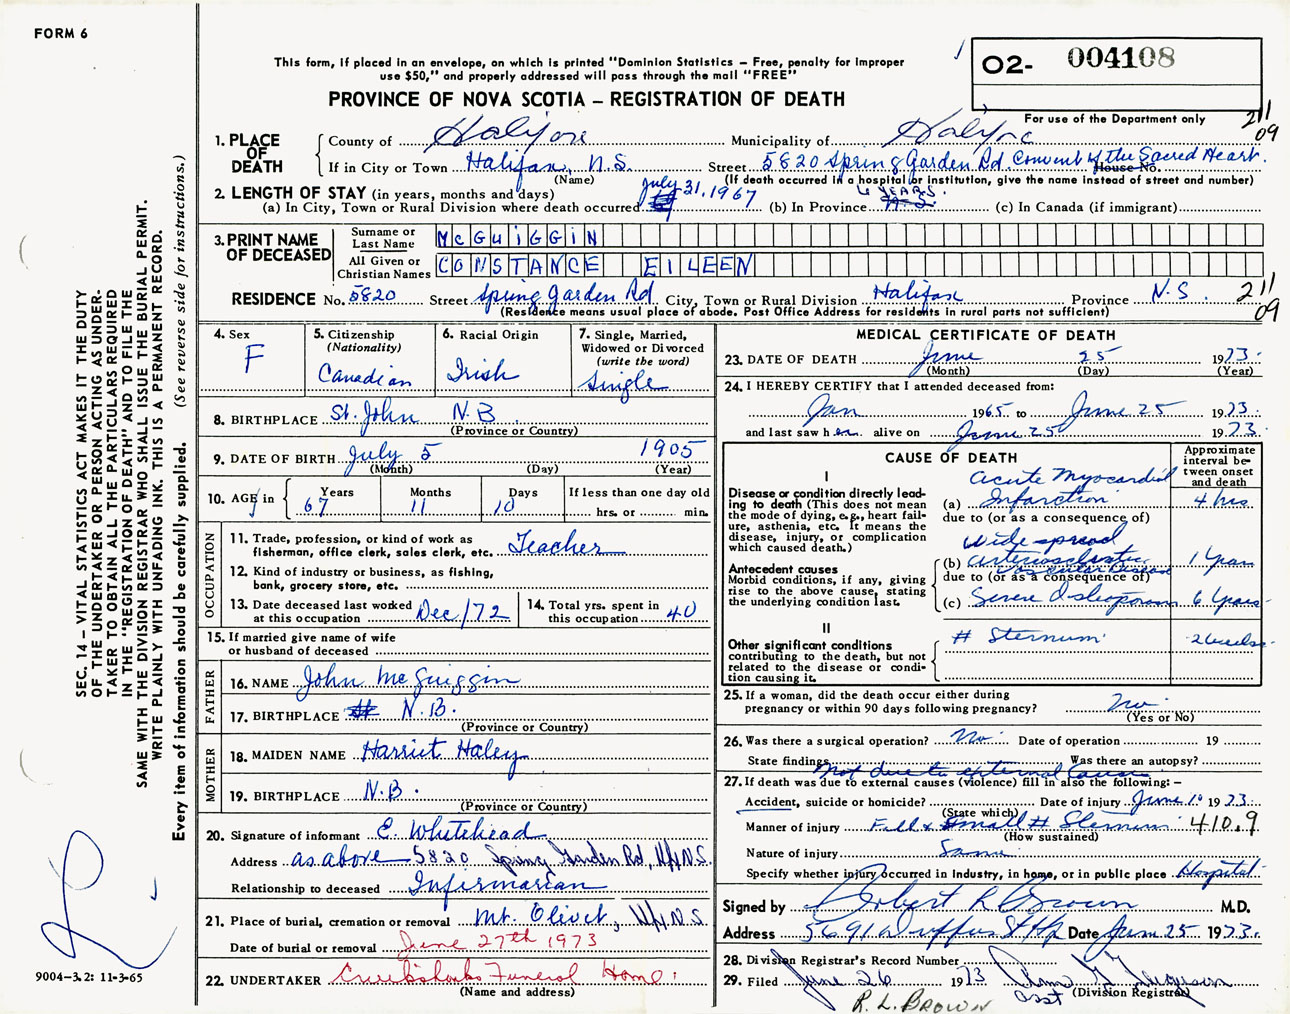 FORM 6
This form, if placed in an envelope, on which is printed "Dominion Statistics – Free, penalty for improper
use $50," and properly addressed will pass through the mail "FREE"
O2- 004108
For use of the Department only
211
09
PROVINCE OF NOVA SCOTIA – REGISTRATION OF DEATH
1. PLACE OF DEATH
County of Halifax Municipality of Halifax
If in City or Town Halifax, N.S. Street 5820 Spring Garden Rd. Convent of the Sacred Heart. House No.
(Name) (If death occurred in a hospital or institution, give the name instead of street and number)
2. LENGTH OF STAY (in years, months and days)
(a) In City, Town or Rural Division where death occurred July 31, 1967 (b) In Province 6 YEARS. (c) In Canada (if immigrant)
3. PRINT NAME OF DECEASED
Surname or Last Name McGUIGGIN
All Given or Christian Names CONSTANCE EILEEN
RESIDENCE No. 5820 Street Spring Garden Rd City, Town or Rural Division Halifax Province N.S. 211
09
(Residence means usual place of abode. Post Office Address for residents in rural parts not sufficient)
4. Sex
F
5. Citizenship
(Nationality)
Canadian
6. Racial Origin
Irish
7. Single, Married,
Widowed or Divorced
(write the word)
Single
8. BIRTHPLACE St. John N.B.
(Province or Country)
9. DATE OF BIRTH July 5 1905
(Month) (Day) (Year)
10. AGE in Years Months Days If less than one day old
67 11 10 hrs. or min.
OCCUPATION
11. Trade, profession, or kind of work as
fisherman, office clerk, sales clerk, etc. Teacher
12. Kind of industry or business, as fishing,
bank, grocery store, etc.
13. Date deceased last worked
at this occupation Dec/72
14. Total yrs. spent in
this occupation 40
15. If married give name of wife
or husband of deceased
FATHER
16. NAME John McGuiggin
17. BIRTHPLACE N.B.
(Province or Country)
MOTHER
18. MAIDEN NAME Harriet Haley
19. BIRTHPLACE N.B.
(Province or Country)
20. Signature of informant E. Whitehead
Address as above 5820 Spring Garden Rd, Hfx N.S.
Relationship to deceased Infirmarian
21. Place of burial, cremation or removal Mt. Olivet, Hfx N.S.
Date of burial or removal June 27th 1973
22. UNDERTAKER Cruikshanks Funeral Home
(Name and address)
MEDICAL CERTIFICATE OF DEATH
23. DATE OF DEATH June 25 1973
(Month) (Day) (Year)
24. I HEREBY CERTIFY that I attended deceased from:
Jan 1965 to June 25 1973
and last saw her alive on June 25 1973
CAUSE OF DEATH
Approximate interval between onset and death
I
Disease or condition directly leading to death (This does not mean the mode of dying, e.g., heart failure, asthenia, etc. It means the disease, injury, or complication which caused death.)
(a) Acute Myocardial Infarction 4 hrs
due to (or as a consequence of)
Antecedent causes
Morbid conditions, if any, giving rise to the above cause, stating the underlying condition last.
(b) Wide spread arteriosclerotic vascular disease 1 Year
due to (or as a consequence of)
(c) Severe Osteoporosis 6 Years
II
Other significant conditions contributing to the death, but not related to the disease or condition causing it.
# Sternum 2 weeks
25. If a woman, did the death occur either during
pregnancy or within 90 days following pregnancy? No
(Yes or No)
26. Was there a surgical operation? No Date of operation 19
State findings Was there an autopsy?
Not due to external cause
27. If death was due to external causes (violence) fill in also the following: –
Accident, suicide or homicide? Date of injury June 1973
(State which)
Manner of injury Fall & small # Sternum 410.9
(How sustained)
Nature of injury Same
Specify whether injury occurred in Industry, in home, or in public place Hospital
Signed by Robert L Brown M.D.
Address 5691 Duffus St Hfx Date Jun 25 1973
28. Division Registrar's Record Number
29. Filed June 26 1973
asst (Division Registrar)
R. L. BROWN
SEC. 14 – VITAL STATISTICS ACT MAKES IT THE DUTY
OF THE UNDERTAKER OR PERSON ACTING AS UNDER-
TAKER TO OBTAIN ALL THE PARTICULARS REQUIRED
IN THE "REGISTRATION OF DEATH" AND TO FILE THE
SAME WITH THE DIVISION REGISTRAR WHO SHALL ISSUE THE BURIAL PERMIT.
WRITE PLAINLY WITH UNFADING INK. THIS IS A PERMANENT RECORD.
Every item of information should be carefully supplied. (See reverse side for instructions.)
9004-3.2: 11-3-65